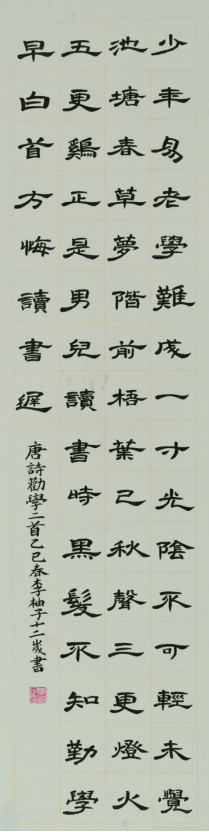 少年易老學難成一寸光陰不可輕未覺
池塘春草夢階前梧葉已秋聲三更燈火
五更鷄正是男兒讀書時黑髮不知勤學
早白首方悔讀書遲
唐詩勸學二首乙巳春李柚子十二歲書